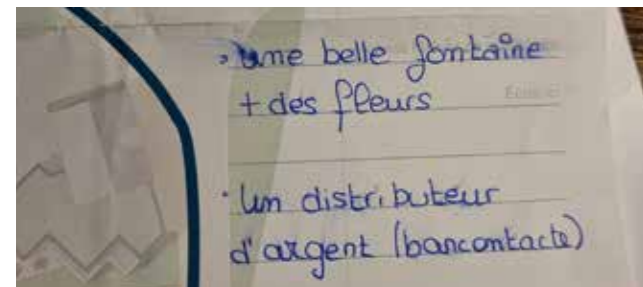 • une belle fontaîne
+ des fleurs
• Un distributeur
d'argent (bancontacte)